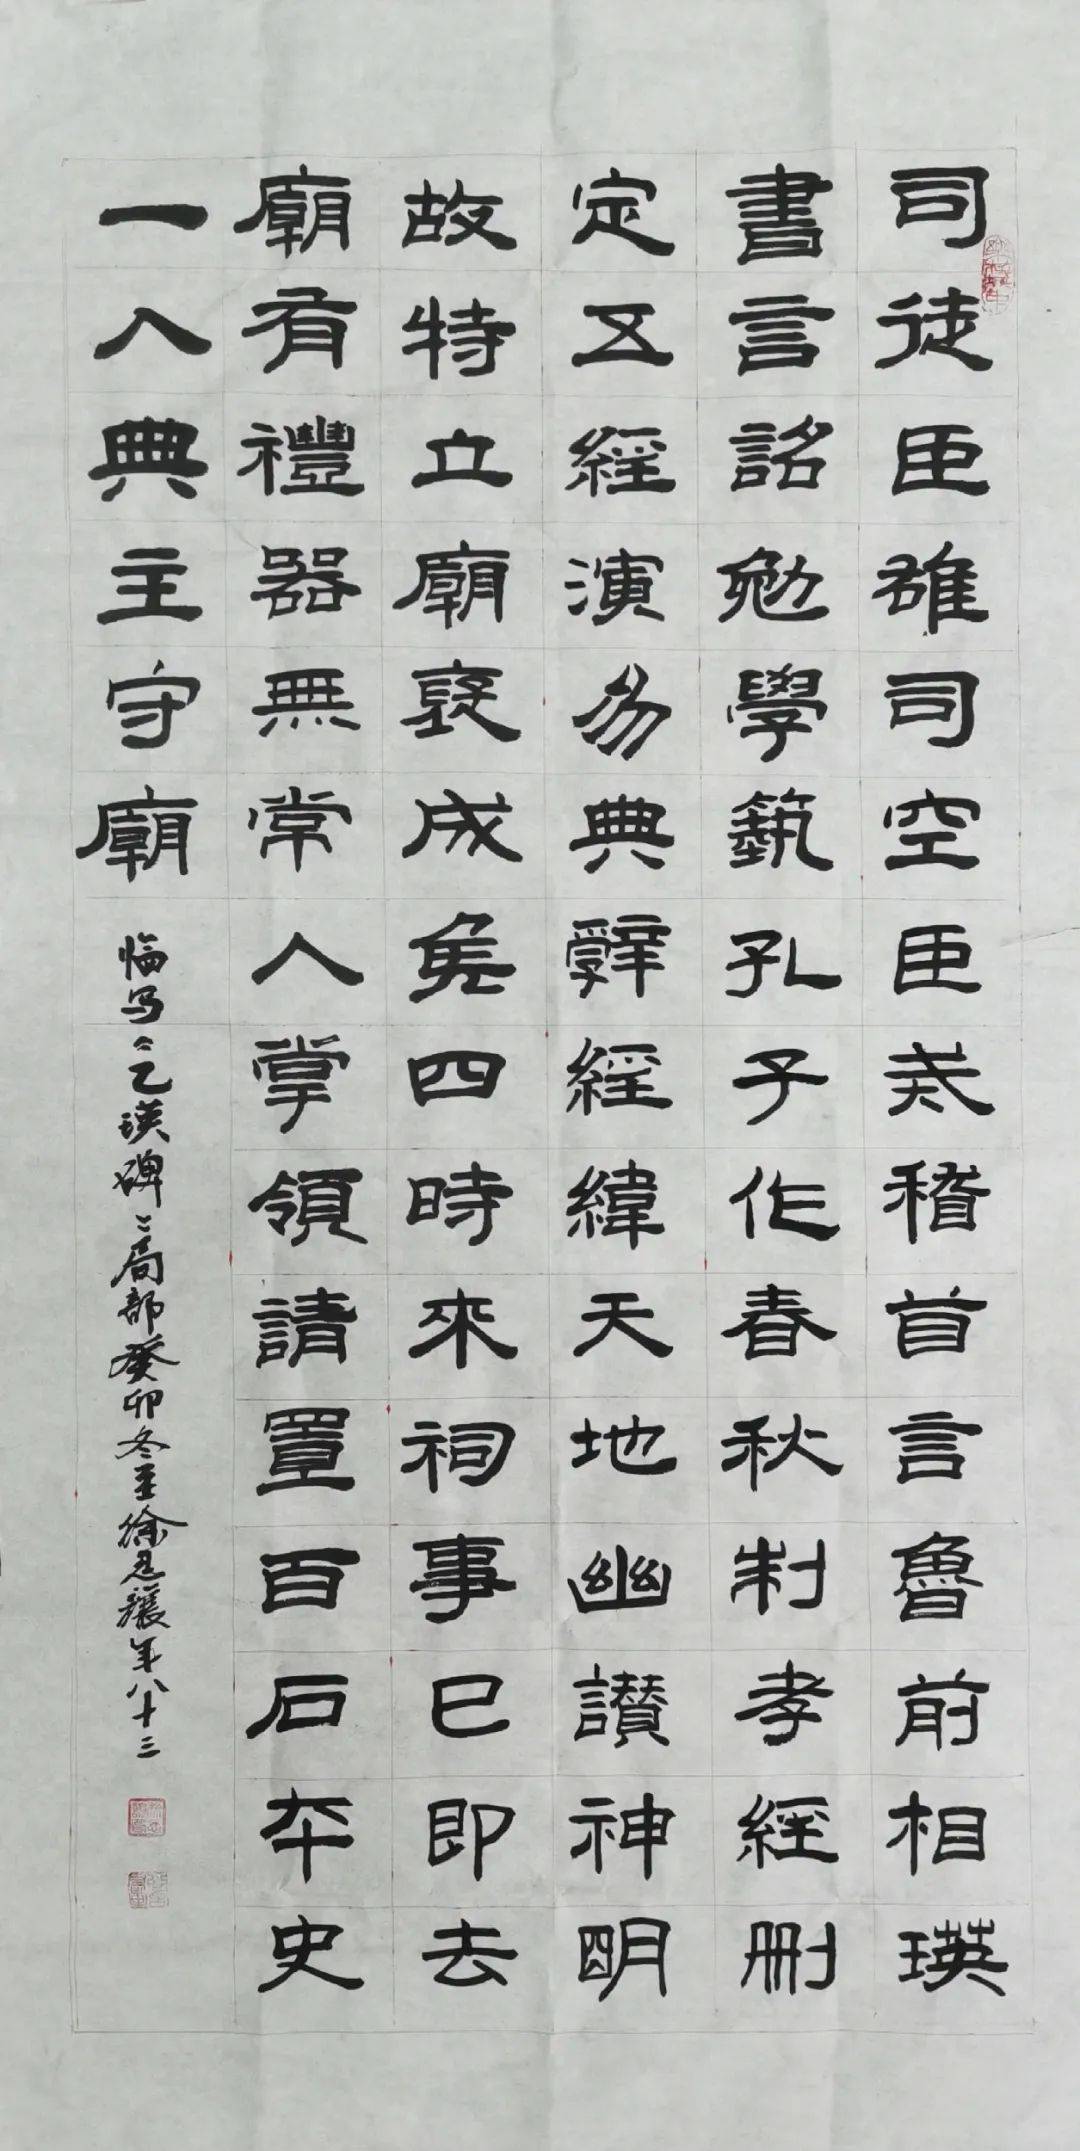 司徒臣雄司空臣戒稽首言魯前相瑛
書言詔勉學藝孔子作春秋制孝經刪
定五經演易典辭經緯天地幽讚神明
故特立廟褒成矦四時來祠事已即去
廟有禮器無常人掌領請置百石卒史
一人典主守廟
临写《乙瑛碑》局部癸卯冬至徐忍讓年八十三